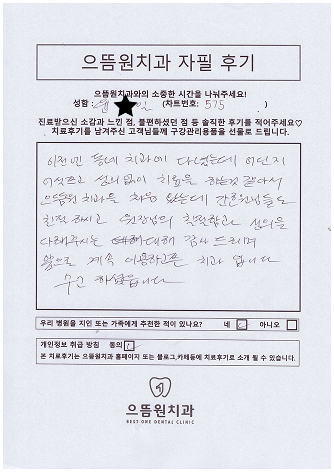 으뜸원치과 자필 후기
으뜸원치과와의 소중한 시간을 나눠주세요!
성함 일 (차트번호: 575 )
진료받으신 소감과 느낀 점, 불편하셨던 점 등 솔직한 후기를 적어주세요♡
치료후기를 남겨주신 고객님들께 구강관리용품을 선물로 드립니다.
이전엔 동네 치과에 다녔는데 어딘지
어설프고 성의없이 치료를 하는것 같아서
으뜸원 치과를 처음 왔는데 간호원님들도
친절 하시고 원장님의 친절함과 성의을
다해주시는 대해 감사 드리며
앞으로 계속 이용하고픈 치과 입니다
수고 하셨습니다
우리 병원을 지인 또는 가족에게 추천한 적이 있나요? 네 아니오
개인정보 취급 방침 동의
본 치료후기는 으뜸원치과 홈페이지 또는 블로그,카페등에 치료후기로 소개 될 수 있습니다.
으뜸원치과
BEST ONE DENTAL CLINIC